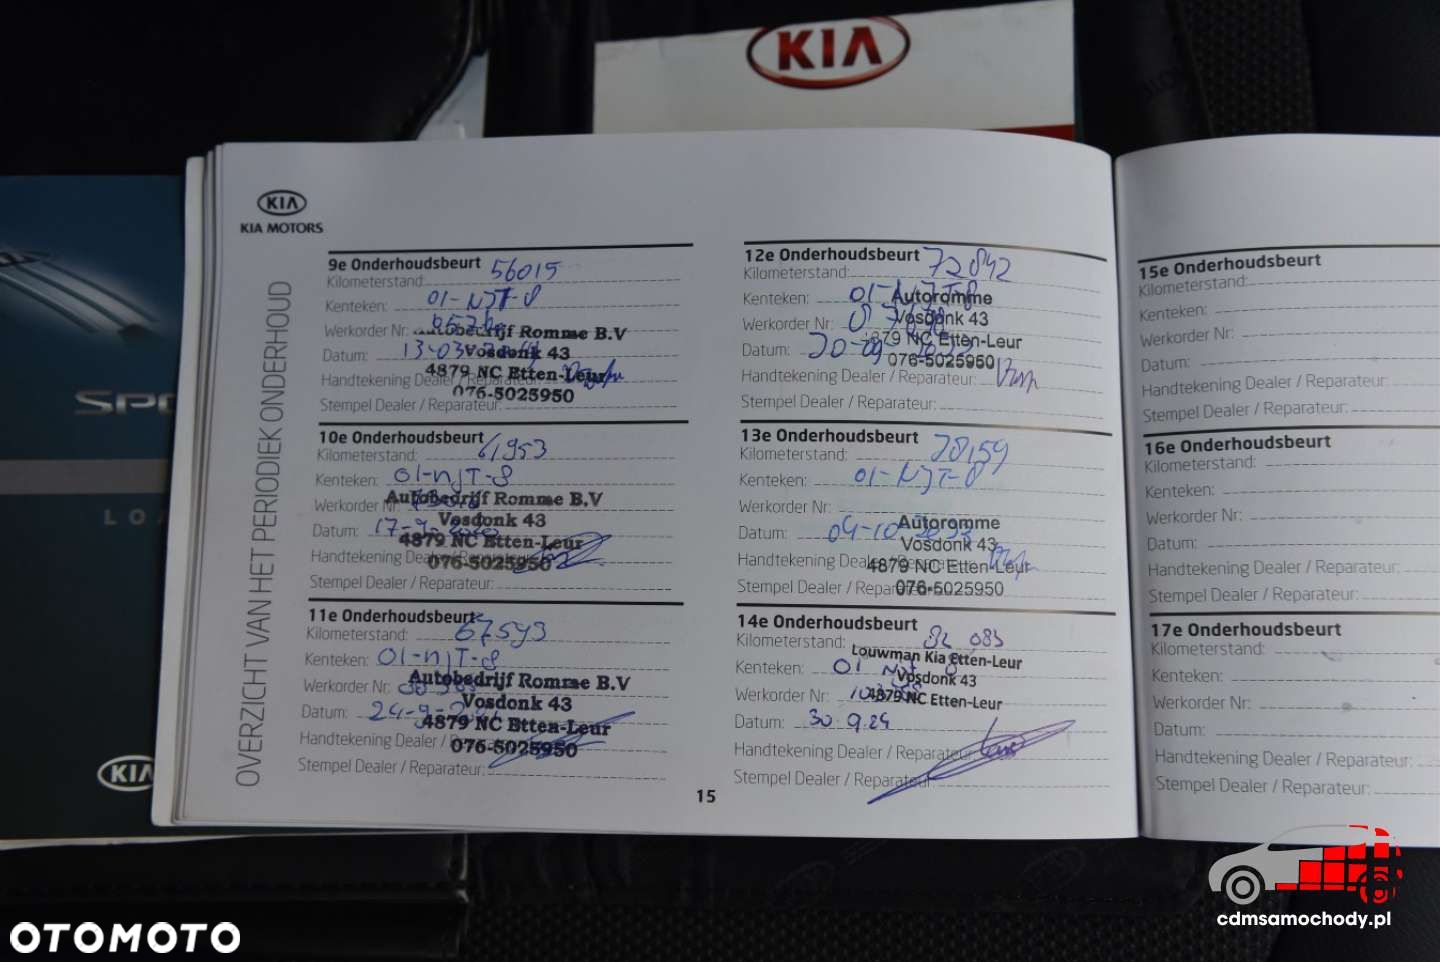 KIA
KIA
KIA MOTORS
OVERZICHT VAN HET PERIODIEK ONDERHOUD
9e Onderhoudsbeurt
Kilometerstand: 56015
Kenteken: 01-NJT-8
Werkorder Nr:
Autobedrijf Romme B.V
Datum: 13-03
Vosdonk 43
4879 NC Etten-Leur
Handtekening Dealer / Reparateur:
076-5025950
Stempel Dealer / Reparateur:
10e Onderhoudsbeurt
Kilometerstand: 61953
Kenteken: 01-NJT-8
Werkorder Nr:
Autobedrijf Romme B.V
Vosdonk 43
Datum: 17-9-
4879 NC Etten-Leur
Handtekening Dealer / Reparateur:
076-5025950
Stempel Dealer / Reparateur:
11e Onderhoudsbeurt
Kilometerstand: 67593
Kenteken: 01-NJT-8
Werkorder Nr:
Autobedrijf Romme B.V
Vosdonk 43
Datum: 24-9-
4879 NC Etten-Leur
Handtekening Dealer / Reparateur:
076-5025950
Stempel Dealer / Reparateur:
12e Onderhoudsbeurt
Kilometerstand: 72842
Kenteken: 01-NJT-8
Autoromme
Werkorder Nr:
Vosdonk 43
4879 NC Etten-Leur
Datum: 20-09
076-5025950
Handtekening Dealer / Reparateur:
Stempel Dealer / Reparateur:
13e Onderhoudsbeurt
Kilometerstand: 78159
Kenteken: 01-NJT-8
Werkorder Nr:
Autoromme
Datum: 04-10-2023
Vosdonk 43
Handtekening Dealer / Reparateur:
4879 NC Etten-Leur
Stempel Dealer / Reparateur:
076-5025950
14e Onderhoudsbeurt
Kilometerstand: 82 083
Louwman Kia Etten-Leur
Kenteken: 01 NJT 8
Vosdonk 43
Werkorder Nr:
4879 NC Etten-Leur
Datum: 30 9.24
Handtekening Dealer / Reparateur:
Stempel Dealer / Reparateur:
15
15e Onderhoudsbeurt
Kilometerstand:
Kenteken:
Werkorder Nr:
Datum:
Handtekening Dealer / Reparateur:
Stempel Dealer / Reparateur:
16e Onderhoudsbeurt
Kilometerstand:
Kenteken:
Werkorder Nr:
Datum:
Handtekening Dealer / Reparateur:
Stempel Dealer / Reparateur:
17e Onderhoudsbeurt
Kilometerstand:
Kenteken:
Werkorder Nr:
Datum:
Handtekening Dealer / Reparateur:
Stempel Dealer / Reparateur:
KIA
cdmsamochody.pl
OTOMOTO